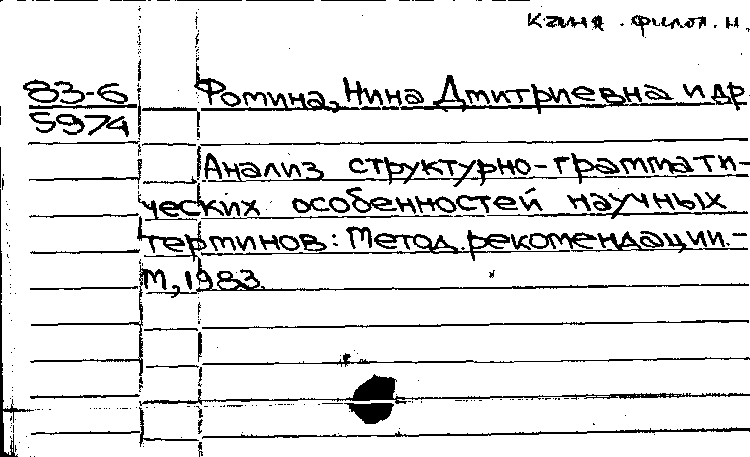 канд. филол. н.
83-6 Фомина, Нина Дмитриевна и др
5974
Анализ структурно-граммати-
ческих особенностей научных
терминов: Метод. рекомендации.-
М., 1983